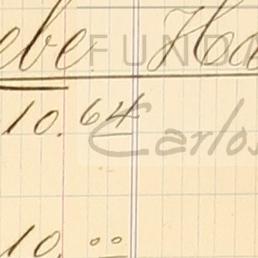 ebe Ha
FUND
10.64
Carlos
10.00